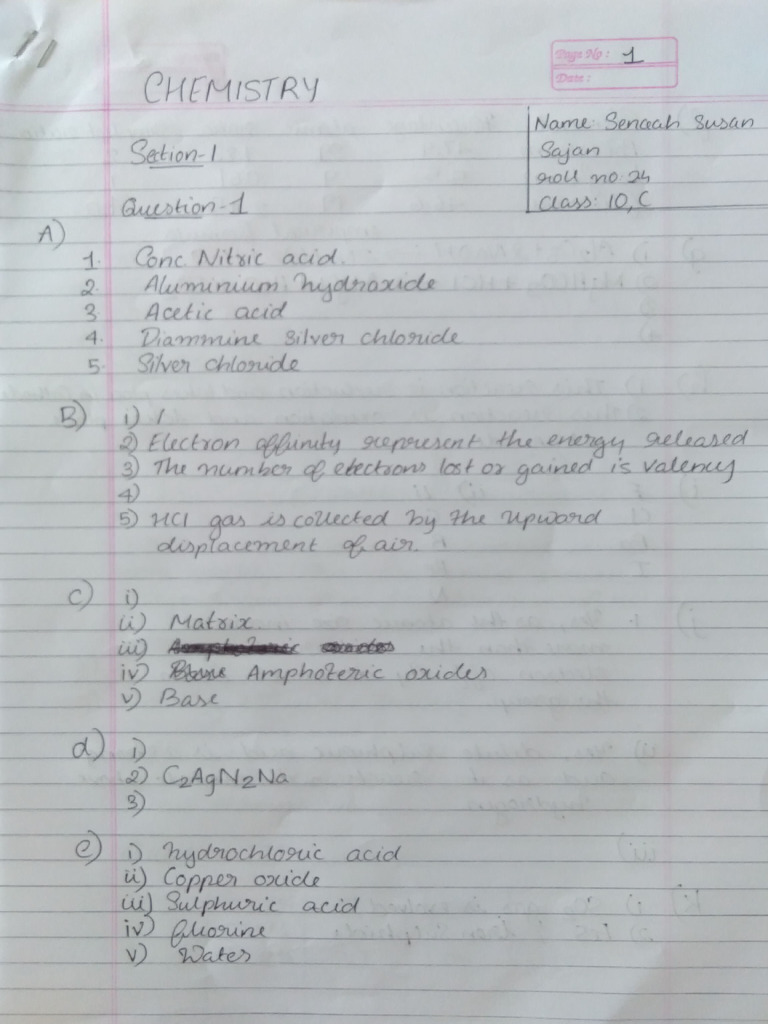 Page No: 1
Date:
CHEMISTRY
Name Senaah Susan
Sajan
roll no: 24
Class: 10, C
Section-1
Question-1
A)
1. Conc Nitric acid.
2. Aluminium hydroxide
3. Acetic acid
4. Diammine silver chloride
5. Silver chloride
B) i) /
2) Electron affinity represent the energy released
3) The number of electrons lost or gained is valency
4)
5) HCl gas is collected by the upward
displacement of air.
c) i)
ii) Matrix
iii)
iv) Amphoteric oxides
v) Base
d) i)
2) C2AgN2Na
3)
e) i) hydrochloric acid
ii) Copper oxide
iii) Sulphuric acid
iv)
v) Water